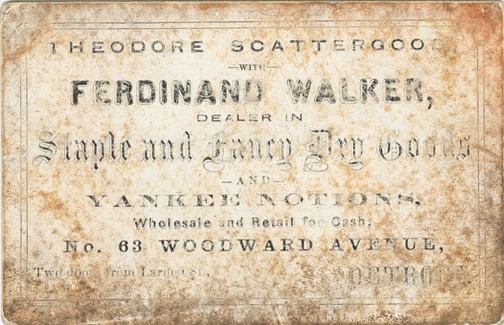 THEODORE SCATTERGOOD,
—WITH—
FERDINAND WALKER,
DEALER IN
Staple and Fancy Dry Goods
—AND—
YANKEE NOTIONS,
Wholesale and Retail for Cash,
No. 63 WOODWARD AVENUE,
Two doors from Larned st., DETROIT.